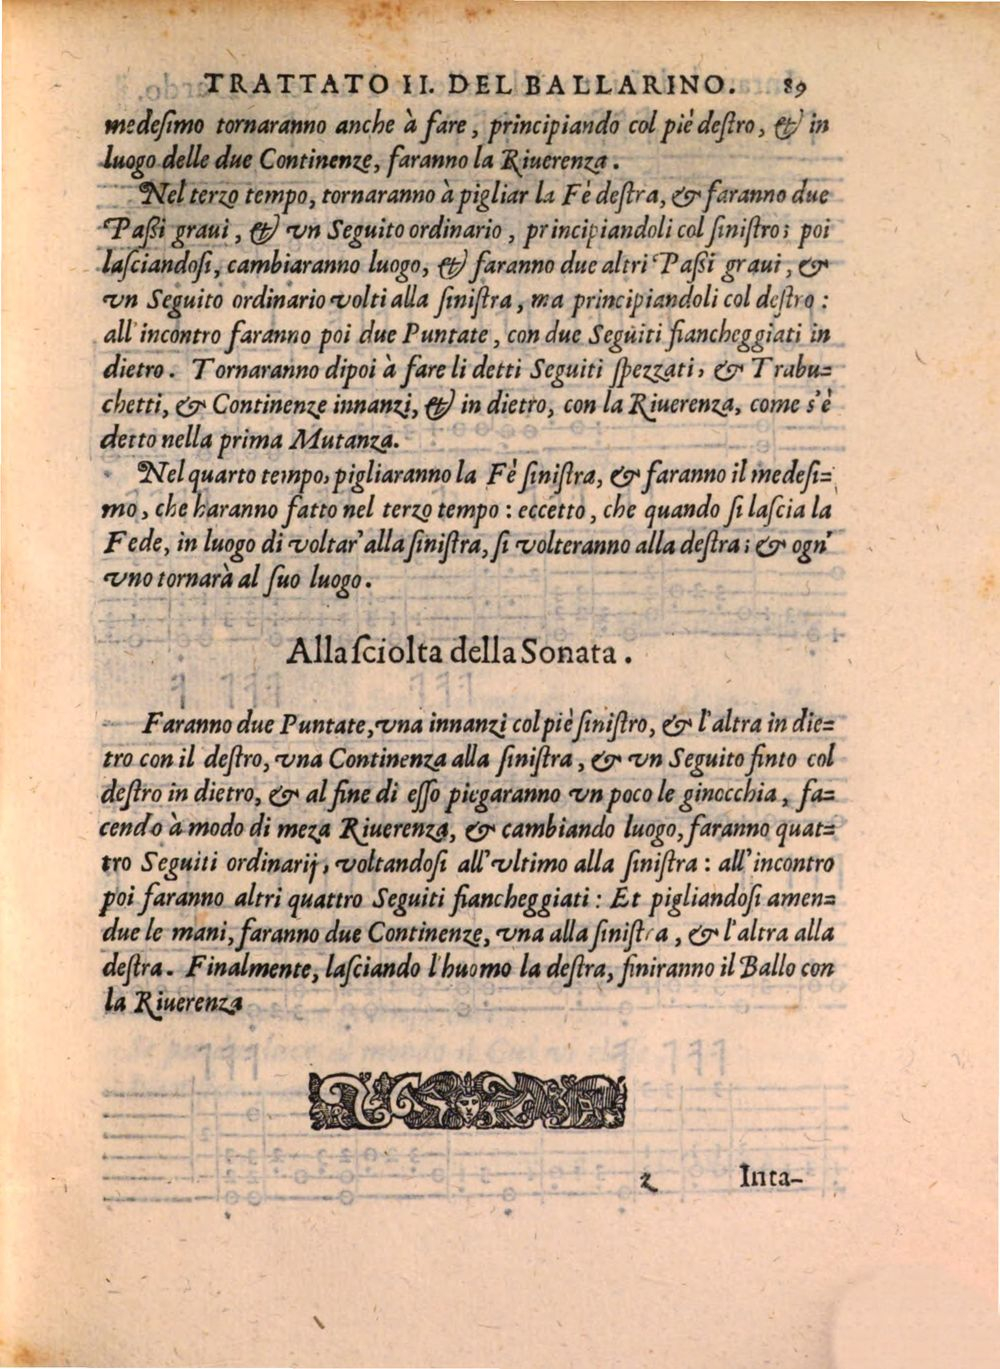 TRATTATO II. DEL BALLARINO. 89
medeſimo tornaranno anche à fare, principiando col piè deſtro, & in
luogo delle due Continenze, faranno la Riuerenza.
Nel terzo tempo, tornaranno à pigliar la Fè deſtra, & faranno due
Paßi graui, & vn Seguito ordinario, principiandoli col ſiniſtro; poi
laſciandoſi, cambiaranno luogo, & faranno due altri Paßi graui, &
vn Seguito ordinario volti alla ſiniſtra, ma principiandoli col deſtro:
all'incontro faranno poi due Puntate, con due Seguiti fiancheggiati in
dietro. Tornaranno dipoi à fare li detti Seguiti ſpezzati, & Trabu=
chetti, & Continenze innanzi, & in dietro, con la Riuerenza, come s'è
detto nella prima Mutanza.
Nel quarto tempo, pigliaranno la Fè ſiniſtra, & faranno il medeſi=
mo, che haranno fatto nel terzo tempo: eccetto, che quando ſi laſcia la
Fede, in luogo di voltar' alla ſiniſtra, ſi volteranno alla deſtra; & ogn'
vno tornarà al ſuo luogo.
Alla ſciolta della Sonata.
Faranno due Puntate, vna innanzi col piè ſiniſtro, & l'altra in die=
tro con il deſtro, vna Continenza alla ſiniſtra, & vn Seguito finto col
deſtro in dietro, & al fine di eſſo piegaranno vn poco le ginocchia, fa=
cendo à modo di meza Riuerenza, & cambiando luogo, faranno quat=
tro Seguiti ordinarij, voltandoſi all'vltimo alla ſiniſtra: all'incontro
poi faranno altri quattro Seguiti fiancheggiati: Et pigliandoſi amen=
due le mani, faranno due Continenze, vna alla ſiniſtra, & l'altra alla
deſtra. Finalmente, laſciando l'huomo la deſtra, finiranno il Ballo con
la Riuerenza
z Inta-